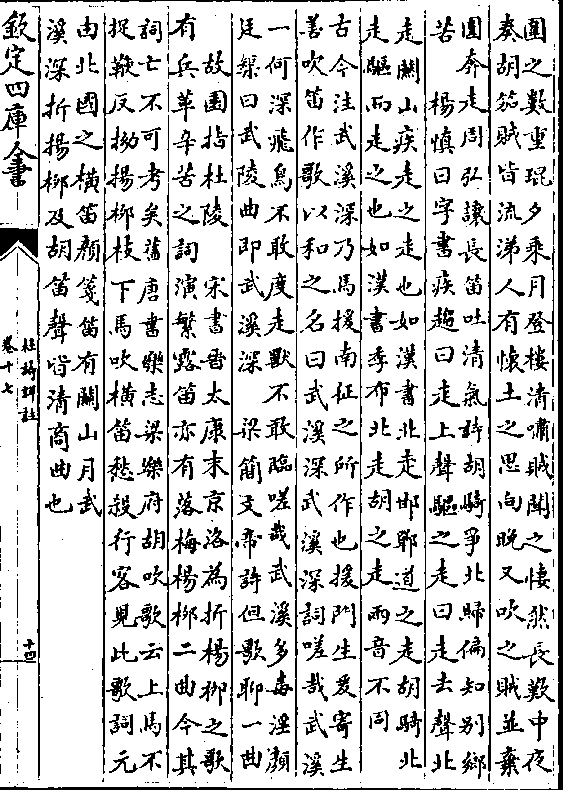 圍之數重琨夕乘月登樓清嘯賊聞之悽然長歎中夜
奏胡笳賊皆流涕人有懷土之思向晚又吹之賊並棄
圍奔走周弘讓長笛吐清氣詩胡騎爭北歸偏知别鄉
苦　楊慎曰字書疾趨曰走上聲驅之走曰走去聲北
走關山疾走之走也如漢書北走邯鄲道之走胡騎北
走驅而走之也如漢書季布北走胡之走兩音不同
古今注武溪深乃馬援南征之所作也援門生爰寄生
善吹笛作歌以和之名曰武溪深武溪深詞嗟哉武溪
一何深飛鳥不敢度走獸不敢臨嗟哉武溪多毒淫顏
廷榘曰武陵曲即武溪深　梁簡文帝詩但歌聊一曲
故園指杜陵　宋書晉太康末京洛為折楊柳之歌
有兵革辛苦之詞　演繁露笛亦有落梅楊柳二曲今其
詞亡不可考矣舊唐書樂志梁樂府胡吹歌云上馬不
捉鞭反拗揚柳枝下馬吹横笛愁殺行客兒此歌詞元
由北國之横笛顏箋笛有關山月武
溪深折揚柳及胡笛聲皆清商曲也
欽定四庫全書
杜詩詳註
卷十七
十四